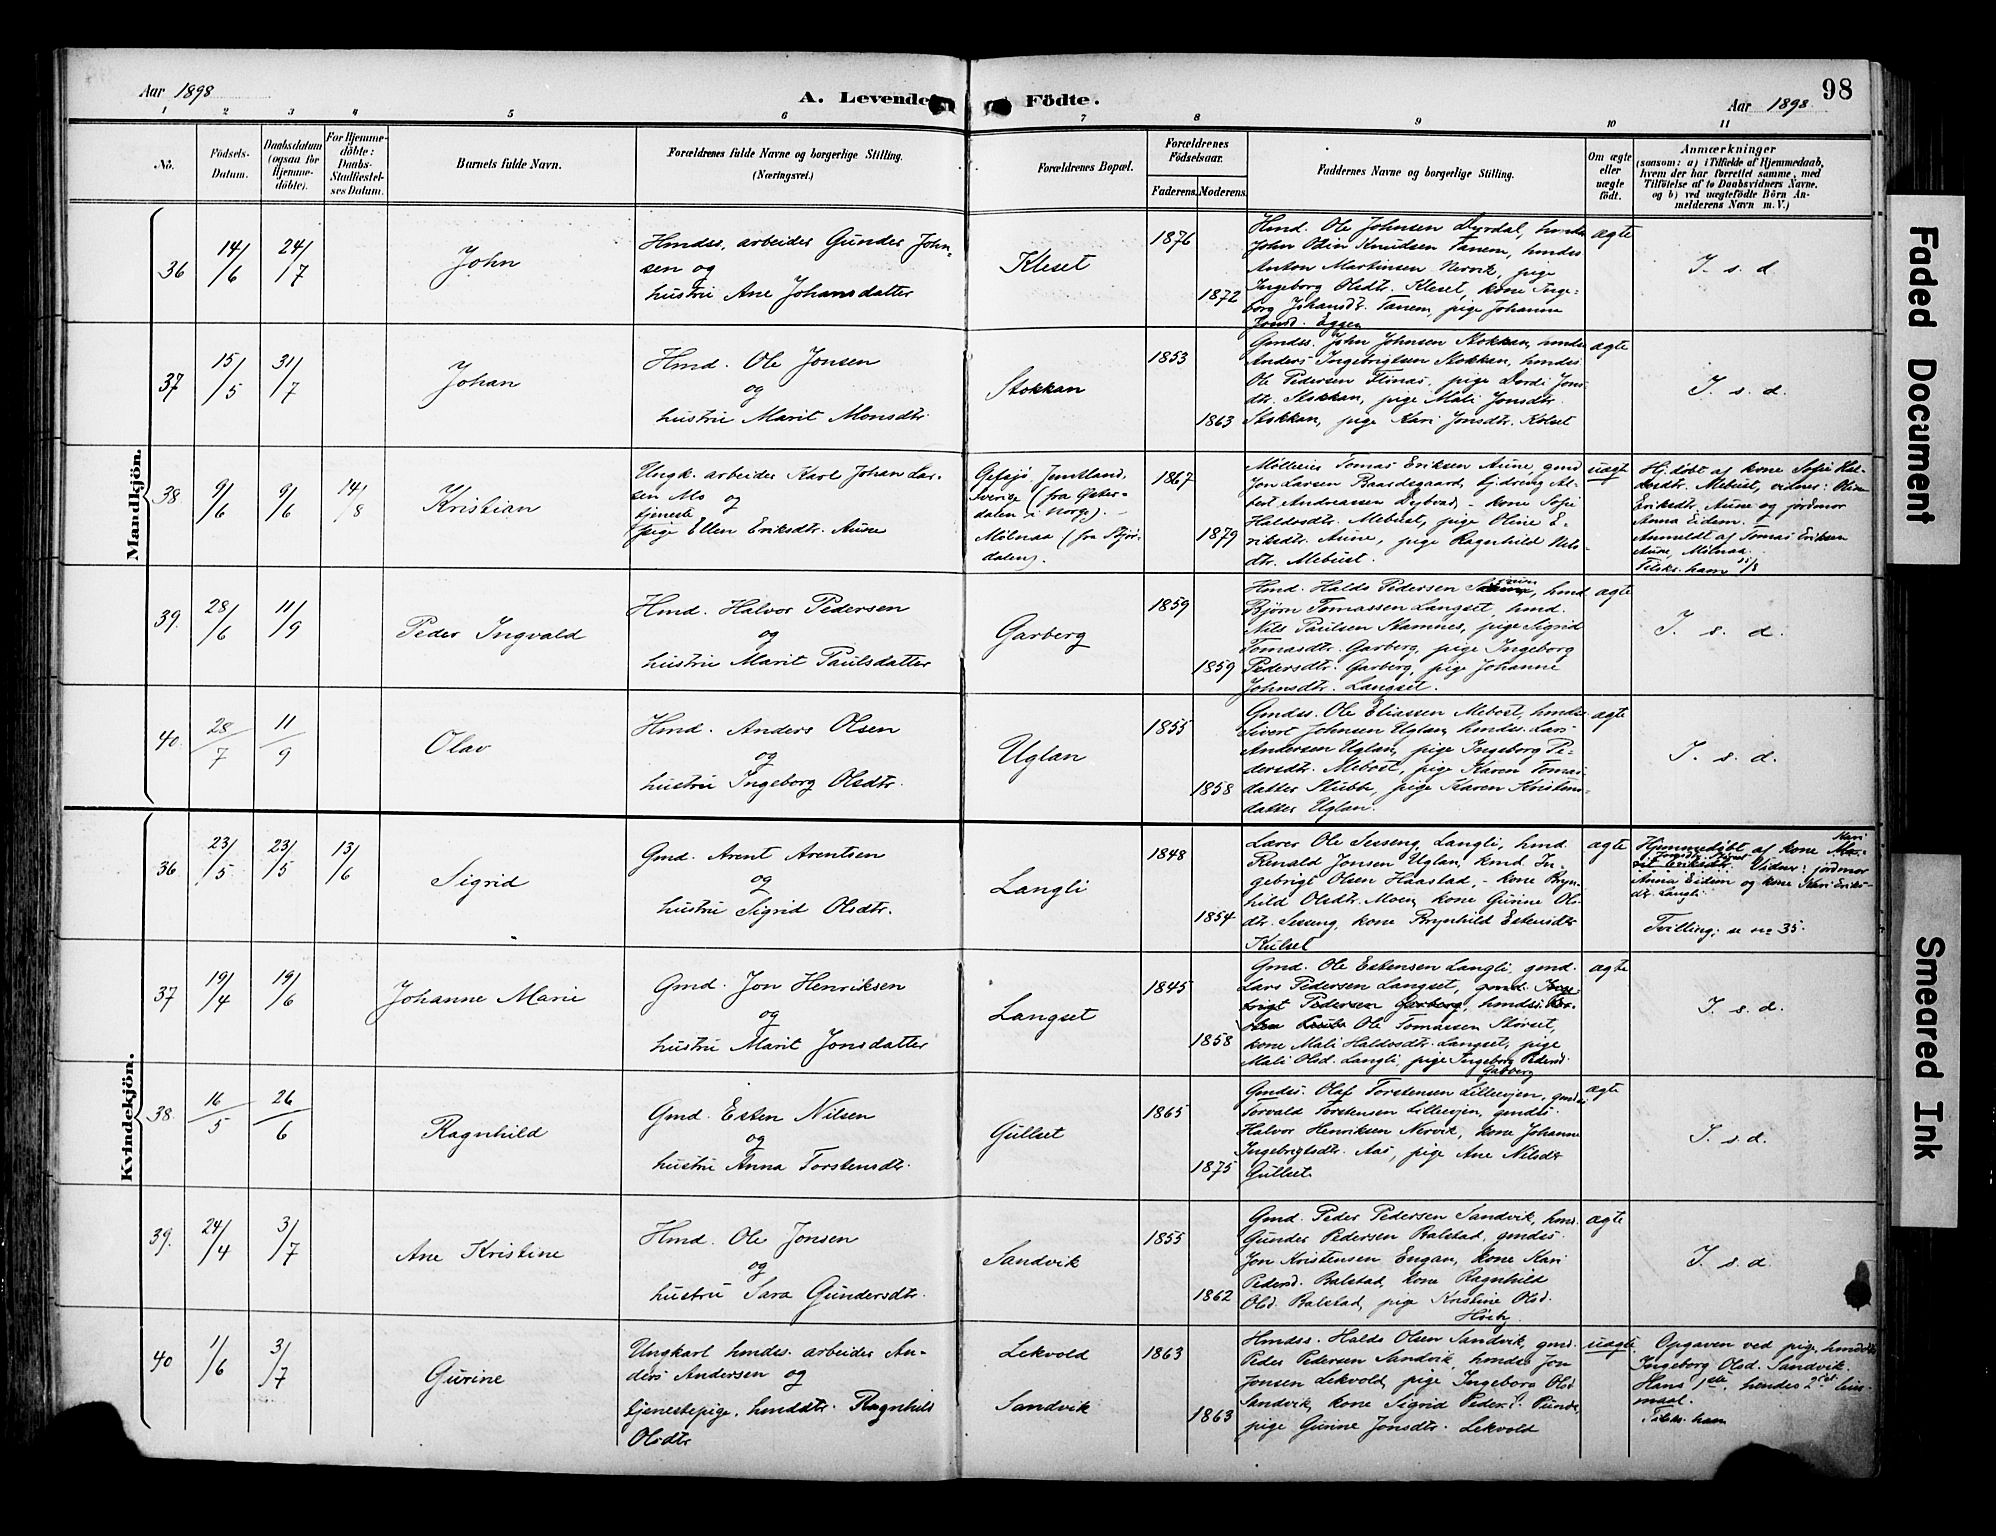 Aar 1898
A. Levende Födte.
98
Aar 1898
1 2 3 4 5 6 7 8 9 10 11
No.
Födsels-Datum.
Daabsdatum (ogsaa for Hjemme-döbte).
For Hjemme-döbte: Daabs-Stadfæstel-ses Datum.
Barnets fulde Navn.
Forældrenes fulde Navne og borgerlige Stilling.
(Næringsvei.)
Forældrenes Bopæl.
Forældrenes Födselsaar.
Faderens. Moderens.
Faddernes Navne og borgerlige Stilling.
Om ægte eller uægte födt.
Anmærkninger
(saasom: a) i Tilfælde af Hjemmedaab,
hvem der har forrettet samme, med
Tilföielse af to Daabsvidners Navne,
og b) ved uægtefödte Börn An-
melderens Navn m. V.)
Mandkjön.
36
14/6
24/7
John
Hmdss. arbeider Gunder John-
sen og
hustru Ane Johansdatter
Kleset
1876
1872
Hmd. Ole Johnsen Dyrdal, hmds
John Odin Knudsen Tanem, hmdss
Anton Martinsen Nervik, pige
Ingeborg Olsdt. Kleset, kone Inge-
borg Johansdt. Tanem, pige Johanne
Jonsd. Eggen
ægte
I. s. d.
37
15/5
31/7
Johan
Hmd. Ole Jonsen
og
hustru Marit Monsdtr.
Stokkan
1853
1863
Gmdss. John Johnsen Stokkan, hmds
Anders Ingebrigtsen Stokkan, hmdss
Ole Pedersen Flönas, pige Dordi Jons-
dtr. Stokkan, pige Mali Jonsdtr.
Stokkan, pige Kari Jonsdtr. Kolset
ægte
I. s. d.
38
9/6
9/6
14/8
Kristian
Ungk. arbeider Karl Johan Lar-
sen Mo og
tjeneste
pige Ellen Eriksdtr. Aune
Gefsjø Jemtland,
Sverige (fra
dalen i Norge). -
Mølnaa (fra Stjør-
dalen).
1867
1879
Tomas Eriksen Aune, gmd
Jon Larsen Baardsgaard, Al-
bert Andreassen Dybvad, kone Sofie
Haldosdtr. Mebust, pige Oline E-
riksdtr. Aune, pige Ragnhild Nils-
dtr. Mebust.
uægt
Hj.døbt af kone Sofie Hal-
dosdtr. Mebust, vidner: Oline
Eriksdtr. Aune og jordmor
Anna Eidem.
Anmeldt af Tomas Eriksen
Aune, Mølnaa.
39.
28/6
11/9
Peder Ingvald
Hmd. Halvor Pedersen
og
hustru Marit Paulsdatter
Garberg
1859
1859
Hmd. Haldo Pedersen hmd
Bjørn Tomassen Langset, hmd.
Nils Paulsen Stamnes, pige Sigrid
Tomasdtr. Garberg, pige Ingeborg
Pedersdtr. Garberg, pige Johanne
Johnsdtr. Langset.
ægte
I. s. d.
40.
28/7
11/9
Olav
Hmd. Anders Olsen
og
hustru Ingeborg Olsdtr.
Uglan
1855
1858
Gmdss. Ole Eliassen Mebost, hmds
Sivert Johnsen Uglan, hmdss. Lars
Andersen Uglan, pige Ingeborg Pe-
dersdtr. Mebost, pige Karen Tomas-
datter Stubbe, pige Karen Kristens-
datter Uglan.
ægte
I. s. d.
Kvindekjön.
36
23/5
23/5
13/6
Sigrid
Gmd. Arent Arentsen
og
hustru Sigrid Olsdtr.
Langli
1848
1854
Lærer Ole Sesseng, Langli, hmd.
Renald Jonsen Uglan, kmd. In-
gebrigt Olsen Haastad, - kone Bryn-
hild Olsdtr. Moen, kone Gurine Ols-
dtr. Sesseng, kone Brynhild Estensdtr.
Kulset
ægte
Hjemmedøbt af kone Mari
Vidner: jordmor
Anna Eidem og kone Kari Eriks-
dt. Langli.
Tvilling; se no 35.
37
19/4
19/6
Johanne Marie
Gmd. Jon Henriksen
og
hustru Marit Jonsdatter
Langset
1845
1858
Gmd. Ole Estensen Langli, gmd.
Lars Pedersen Langset, gmd. Inge-
brigt Pedersen Garberg, hmdss.
Ole Tomassen Størset,
kone Mali Haldosdt. Langset, pige
Mali Olsd. Langli, pige Ingeborg Pedersd.
Garberg
ægte
I. s. d.
38.
16/5
26/6
Ragnhild
Gmd. Esten Nilsen
og
hustru Anna Torstensdtr.
Gullset
1865
1875
Gmdss. Olaf Torstensen Lillevjen, gmds
Torvald Torstensen Lillevjen, gmdss.
Halvor Henriksen Nervik, kone Johanne
Ingebrigtsdtr. Aas, pige Ane Nilsdt
Gullset
ægte
I. s. d.
39.
24/4
3/7
Ane Kristine
Hmd. Ole Jonsen
og
hustru Sara Gundersdtr.
Sandvik
1855
1862
Gmd. Peder Pedersen Sandvik, hms.
Gunder Pedersen Balstad, gmdss.
Jon Kristensen Engan, kone Kari
Pedersd. Balstad, kone Ragnhild
Olsd. Balstad, pige Kristine Olsd.
ægte
I. s. d.
40
1/6
3/7
Gurine
Ungkarl hmdss. arbeider An-
ders Andersen og
tjenestepige, hmdsdtr. Ragnhild
Olsdtr
Lekvold
Sandvik
1863
1863
Hmdss. Haldo Olsen Sandvik, gmd.
Peder Pedersen Sandvik, hmdss Jon
Jonsen Lekvold, pige Ingeborg Olsd
Sandvik, kone Sigrid Pedersd.
pige Gurine Jonsdtr. Lekvold
uægte
Opgaven ved pige, hmdsdtr
Ingeborg Olsd. Sandvik.
Hans 1ste, hendes 2det leier-
maal.
Faded Document
Smeared Ink